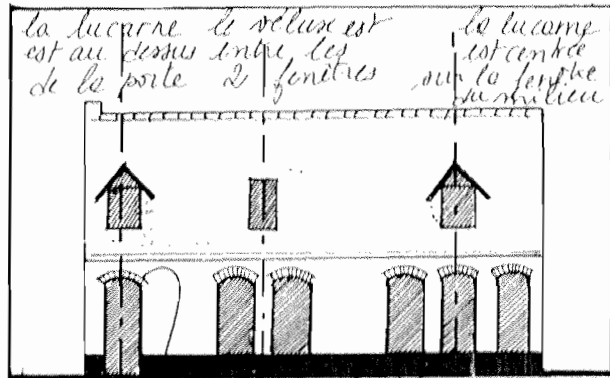 la lucarne
est au dessus
de la porte
le vélux est
entre les
2 fenêtres
la lucarne
est centrée
sur la fenêtre
du milieu